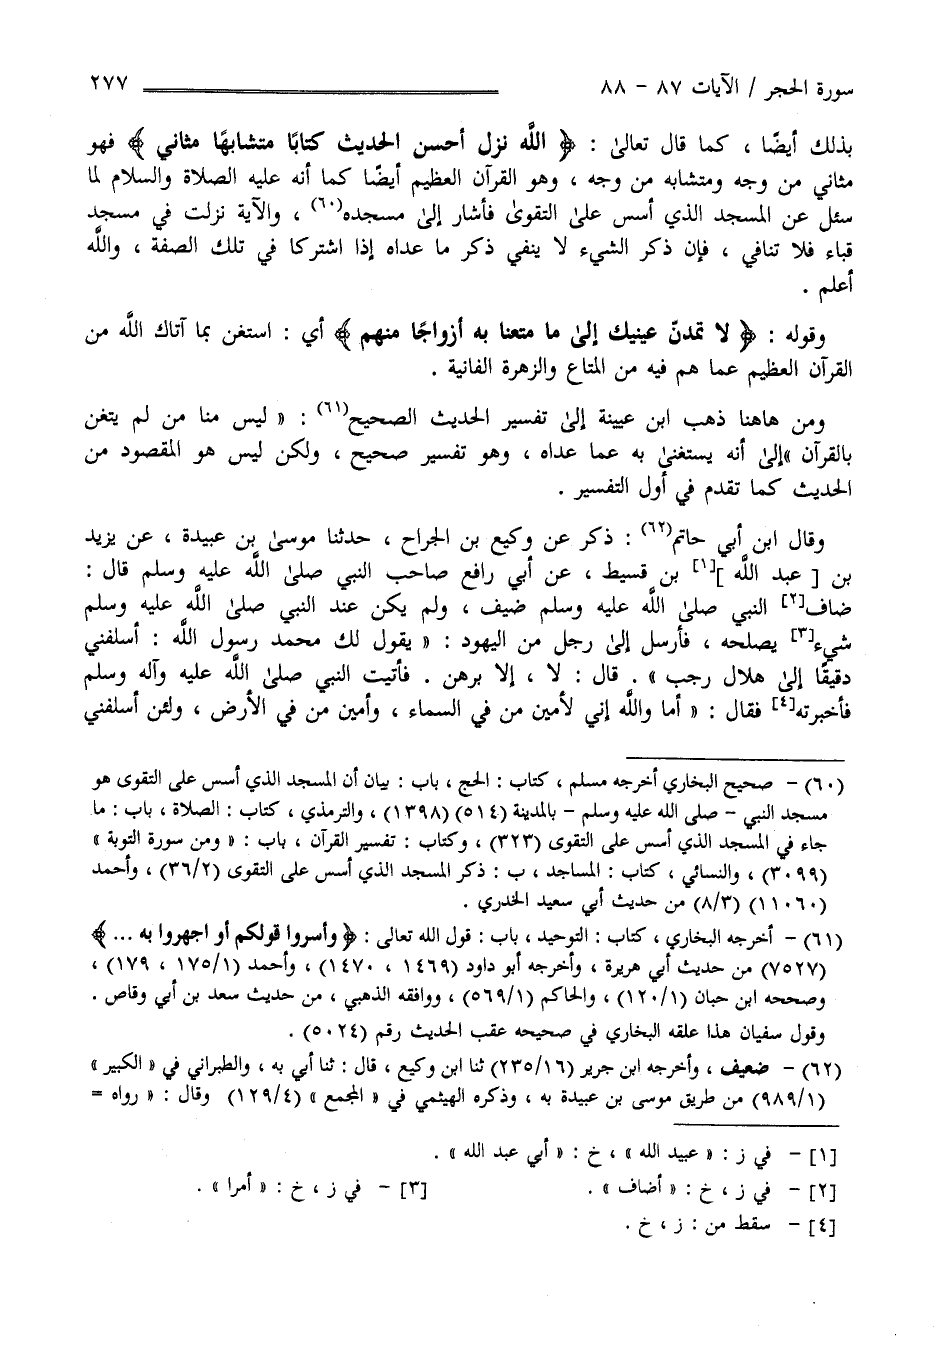 سورة الحجر / الآيات ٨٧ - ٨٨ ٢٧٧
بذلك أيضًا ، كما قال تعالىٰ : ﴿ اللَّه نزل أحسن الحديث كتابًا متشابهًا مثاني ﴾ فهو
مثاني من وجه ومتشابه من وجه ، وهو القرآن العظيم أيضًا كما أنه عليه الصلاة والسلام لما
سئل عن المسجد الذي أسس علىٰ التقوىٰ فأشار إلىٰ مسجده(٦٠) ، والآية نزلت في مسجد
قباء فلا تنافي ، فإن ذكر الشيء لا ينفي ذكر ما عداه إذا اشتركا في تلك الصفة ، واللَّه
أعلم .
وقوله : ﴿ لا تمدنّ عينيك إلىٰ ما متعنا به أزواجًا منهم ﴾ أي : استغن بما آتاك اللَّه من
القرآن العظيم عما هم فيه من المتاع والزهرة الفانية .
ومن هاهنا ذهب ابن عيينة إلىٰ تفسير الحديث الصحيح(٦١) : « ليس منا من لم يتغن
بالقرآن »إلىٰ أنه يستغنىٰ به عما عداه ، وهو تفسير صحيح ، ولكن ليس هو المقصود من
الحديث كما تقدم في أول التفسير .
وقال ابن أبي حاتم(٦٢) : ذكر عن وكيع بن الجراح ، حدثنا موسىٰ بن عبيدة ، عن يزيد
بن [ عبد اللَّه ][١] بن قسيط ، عن أبي رافع صاحب النبي صلىٰ اللَّه عليه وسلم قال :
ضاف[٢] النبي صلىٰ اللَّه عليه وسلم ضيف ، ولم يكن عند النبي صلىٰ اللَّه عليه وسلم
شيء[٣] يصلحه ، فأرسل إلىٰ رجل من اليهود : « يقول لك محمد رسول اللَّه : أسلفني
دقيقًا إلىٰ هلال رجب » . قال : لا ، إلا برهن . فأتيت النبي صلىٰ اللَّه عليه وآله وسلم
فأخبرته[٤] فقال : « أما واللَّه إني لأمين من في السماء ، وأمين من في الأرض ، ولئن أسلفني
(٦٠) - صحيح البخاري أخرجه مسلم ، كتاب : الحج ، باب : بيان أن المسجد الذي أسس على التقوى هو
مسجد النبي - صلى الله عليه وسلم - بالمدينة (٥١٤) (١٣٩٨) ، والترمذي ، كتاب : الصلاة ، باب : ما
جاء في المسجد الذي أسس على التقوى (٣٢٣) ، وكتاب : تفسير القرآن ، باب : « ومن سورة التوبة »
(٣٠٩٩) ، والنسائي ، كتاب : المساجد ، ب : ذكر المسجد الذي أسس على التقوى (٣٦/٢) ، وأحمد
(١١٠٦٠) (٨/٣) من حديث أبي سعيد الخدري .
(٦١) - أخرجه البخاري ، كتاب : التوحيد ، باب : قول الله تعالى : ﴿ وأسروا قولكم أو اجهروا به ... ﴾
(٧٥٢٧) من حديث أبي هريرة ، وأخرجه أبو داود (١٤٦٩ ، ١٤٧٠) ، وأحمد (١٧٥/١ ، ١٧٩) ،
وصححه ابن حبان (١٢٠/١) ، والحاكم (٥٦٩/١) ، ووافقه الذهبي ، من حديث سعد بن أبي وقاص .
وقول سفيان هذا علقه البخاري في صحيحه عقب الحديث رقم (٥٠٢٤) .
(٦٢) - ضعيف ، وأخرجه ابن جرير (٢٣٥/١٦) ثنا ابن وكيع ، قال : ثنا أبي به ، والطبراني في « الكبير »
(٩٨٩/١) من طريق موسى بن عبيدة به ، وذكره الهيثمي في « المجمع » (١٢٩/٤) وقال : « رواه =
[١] - في ز : « عبيد الله » ، خ : « أبي عبد الله » .
[٢] - في ز ، خ : « أضاف » . [٣] - في ز ، خ : « أمرا » .
[٤] - سقط من : ز ، خ .